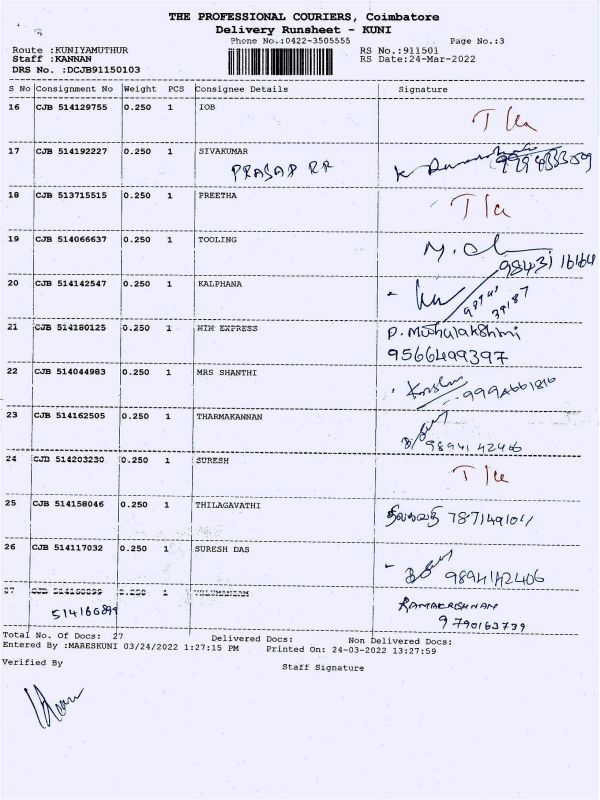 THE PROFESSIONAL COURIERS, Coimbatore
Delivery Runsheet - KUNI
Phone No.:0422-3505555 Page No.:3
Route :KUNIYAMUTHUR RS No.:911501
Staff :KANNAN RS Date:24-Mar-2022
DRS No. :DCJB91150103
S No Consignment No Weight PCS Consignee Details Signature
16 CJB 514129755 0.250 1 IOB
17 CJB 514192227 0.250 1 SIVAKUMAR
18 CJB 513715515 0.250 1 PREETHA
19 CJB 514066637 0.250 1 TOOLING
98431 16164
20 CJB 514142547 0.250 1 KALPHANA
21 CJB 514180125 0.250 1 HIM EXPRESS P. Muthulakshmi
9566499397
22 CJB 514044983 0.250 1 MRS SHANTHI
23 CJB 514162505 0.250 1 THARMAKANNAN
9894142406
24 CJB 514203230 0.250 1 SURESH
25 CJB 514158046 0.250 1 THILAGAVATHI திலகவதி
26 CJB 514117032 0.250 1 SURESH DAS
9894142406
27 0.250 1
514166899 RAMAKRISHNAN
9790163739
Total No. Of Docs: 27 Delivered Docs: Non Delivered Docs:
Entered By :MARESKUNI 03/24/2022 1:27:15 PM Printed On: 24-03-2022 13:27:59
Verified By Staff Signature